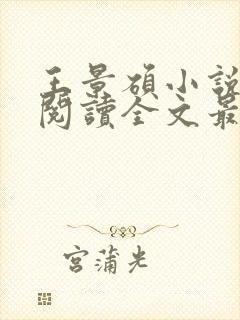 王景碩小說
閱讀全文最
宮蒲光